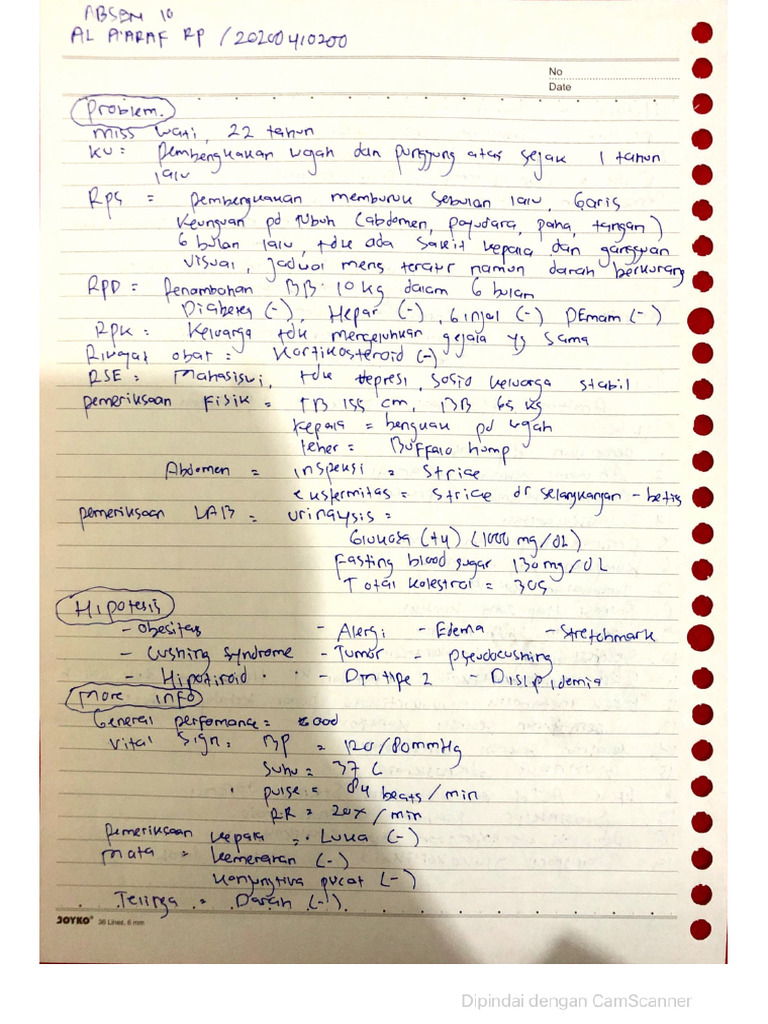 ABSEN 10
AL A'ARAF RP / 20200410200
No
Date
Problem.
Miss Wati, 22 tahun
KU = Pembengkakan wajah dan punggung atas sejak 1 tahun
lalu
RPS = pembengkakan memburuk sebulan lalu, Garis
keunguan pd tubuh (abdomen, payudara, paha, tangan)
6 bulan lalu, tdk ada sakit kepala dan gangguan
visual, jadwal mens teratur namun darah berkurang
RPD = Penambahan BB 10 kg dalam 6 bulan
Diabetes (-), Hepar (-), Ginjal (-) Demam (-)
RPK = Keluarga tdk mengeluhkan gejala yg sama
Riwayat obat = Kortikosteroid (-)
RSE = Mahasiswi, tdk depresi, sosio keluarga stabil
Pemeriksaan Fisik = TB 155 cm, BB 65 kg
Kepala = bengkak pd wajah
Leher = Buffalo hump
Abdomen = inspeksi = Striae
ekstermitas = Striae dr selangkangan - betis
pemeriksaan LAB = urinalysis =
Glukosa (+4) (1000 mg/dL)
Fasting blood sugar 130 mg/dL
Total kolestrol = 305
Hipotesis
- Obesitas - Alergi - Edema - Stretchmark
- Cushing syndrome - Tumor - Pseudocushing
- Hipotiroid - Dm type 2 - Dislipidemia
More info
General perfomance = Good
Vital Sign = BP = 120/80mmHg
Suhu = 37 C
pulse = 84 beats/min
RR = 20x/min
Pemeriksaan kepala = Luka (-)
Mata = kemerahan (-)
konjungtiva pucat (-)
Telinga = Darah (-)
JOYKO 36 Lines, 6 mm
Dipindai dengan CamScanner